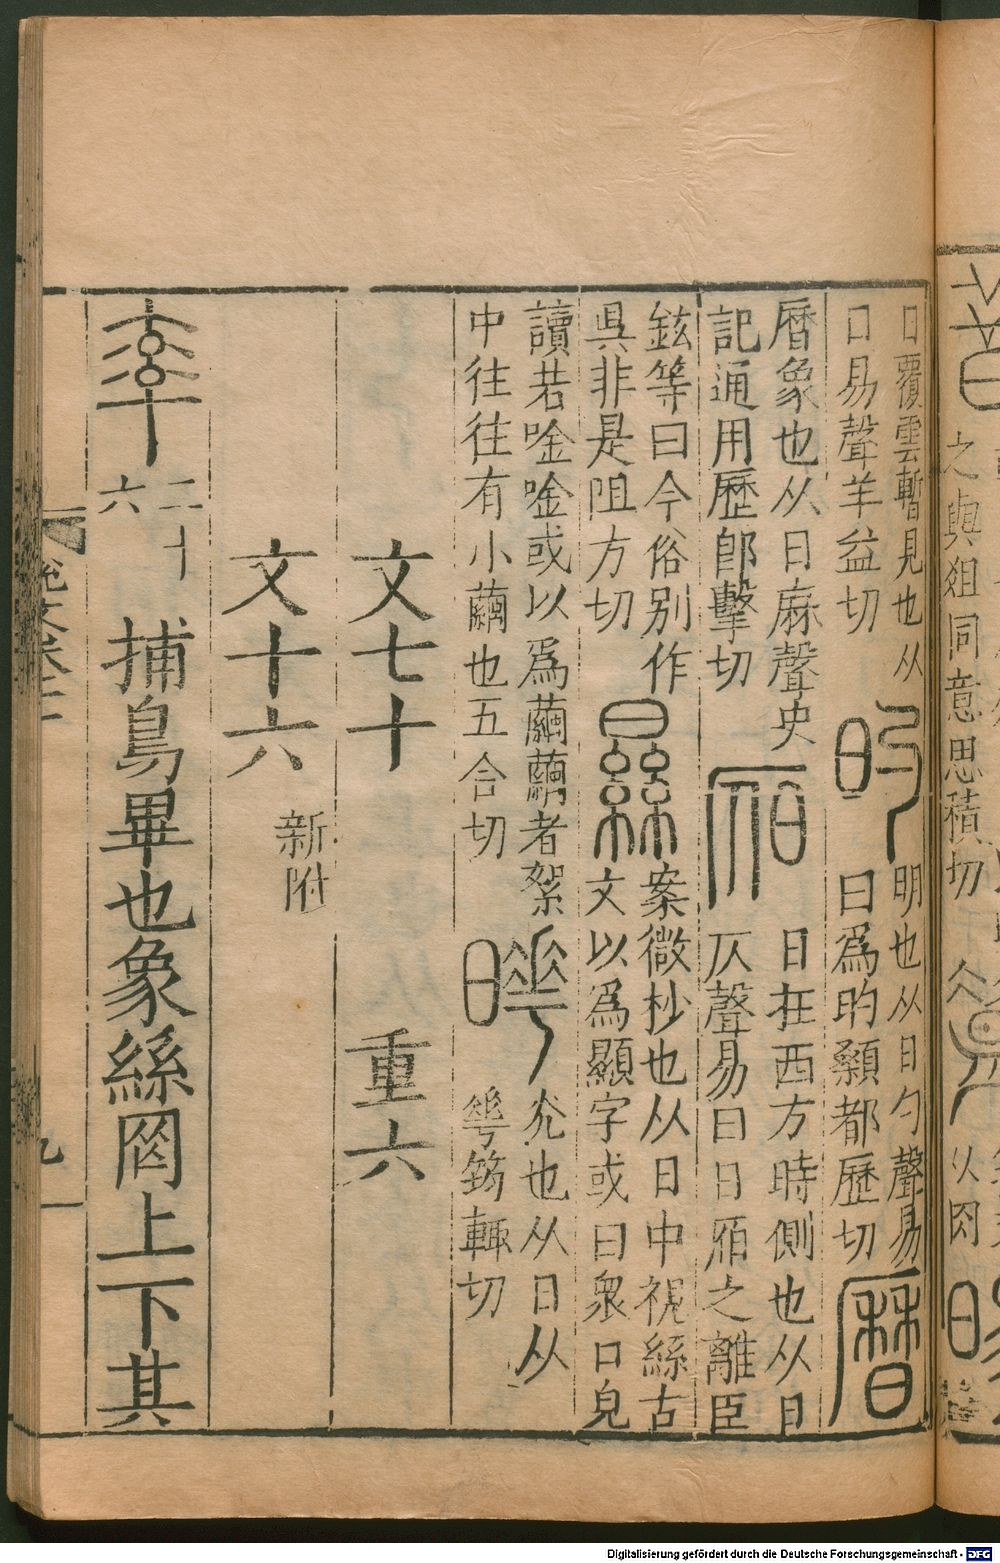 之與俎同意思積切
从肉
日覆雲暫見也从
日易聲羊益切
旳
明也从日勺聲易
曰爲旳顙都歷切
曆
曆象也从日厤聲史
記通用歷郎擊切
日在西方時側也从日
仄聲易曰日之離臣
鉉等曰今俗别作
吳非是阻方切
㬎
案微杪也从日中視絲古
文以爲顯字或曰衆口皃
讀若唫唫或以爲繭繭者絮
中往往有小繭也五合切
曄
光也从日从
𠌶筠輒切
文七十 重六
文十六 新附
率 二十六 捕鳥畢也象絲罔上下其
九